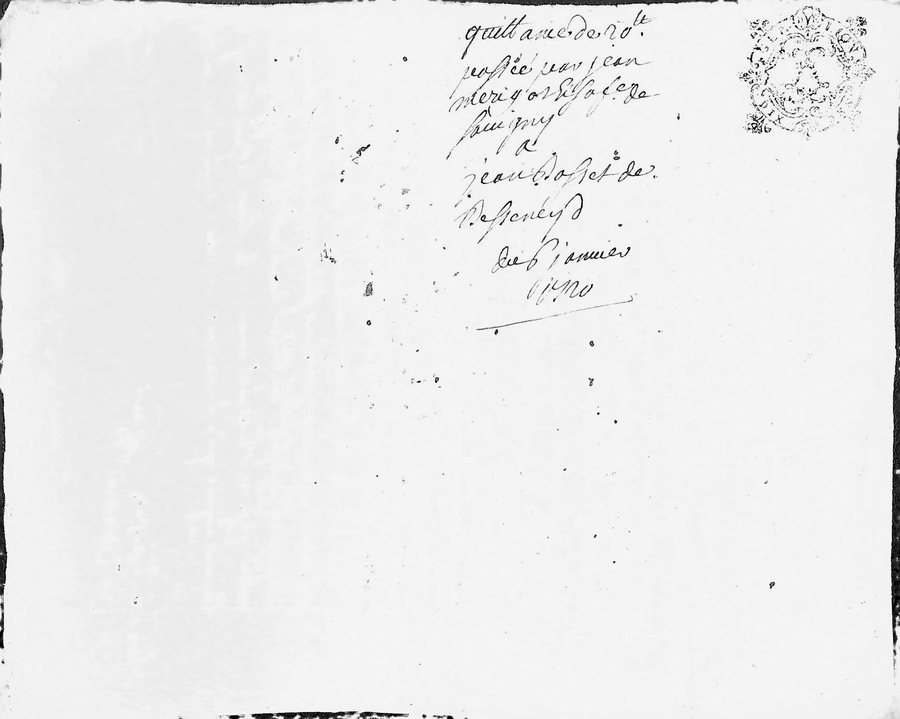 quittance de 20tt.
passéé par jean
merigot et sa fe. de
sauigny
a
jean Dosset de.
Besseney d
du 6 januier
1720